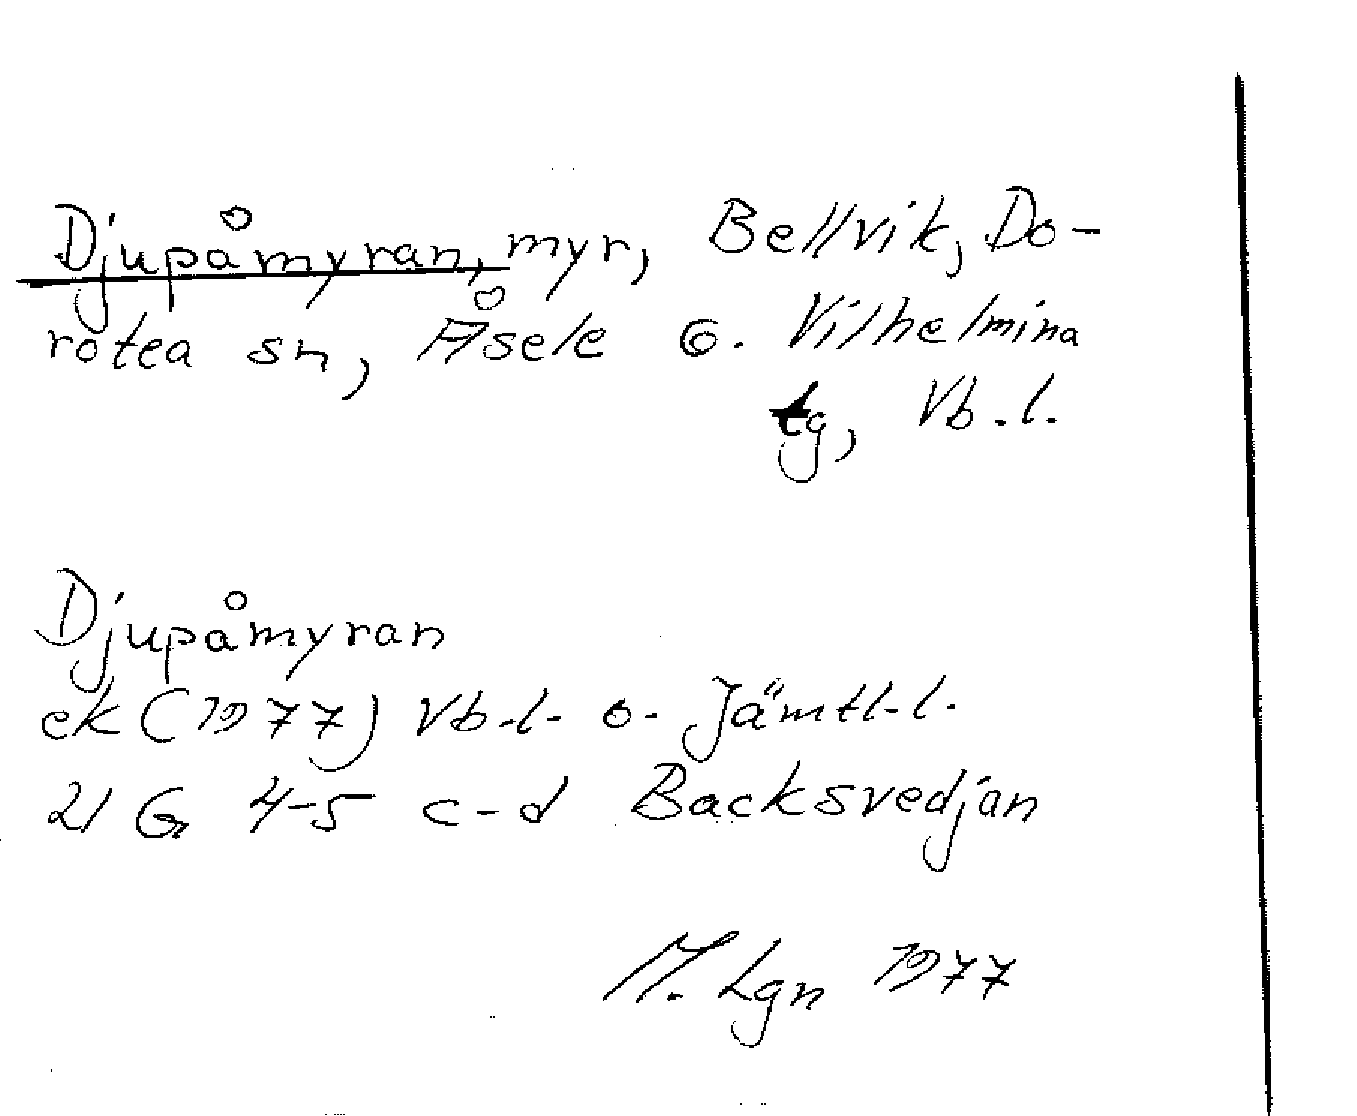 Djupåmyran, myr, Bellvik, Do-
rotea sn, Åsele o. Vilhelmina
tg, Vb.l.
Djupåmyran
ek (1977) Vb.l. o. Jämtl.l.
21 G 4-5 c-d Backsvedjan
M. Lgn 1977